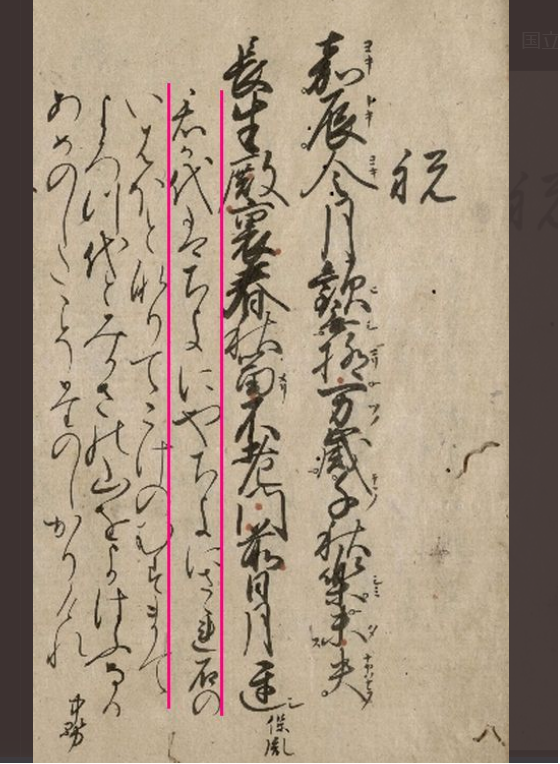 祝
嘉辰令月歓無極万歳千秋楽未央
長生殿裏春秋富不老門前日月遅 保胤
君か代はちよにやちよにさゝれ石の
いはほとなりてこけのむすまて
よろつ代とみかさの山そよはふなる
あめのしたこそたのしかりけれ
国立